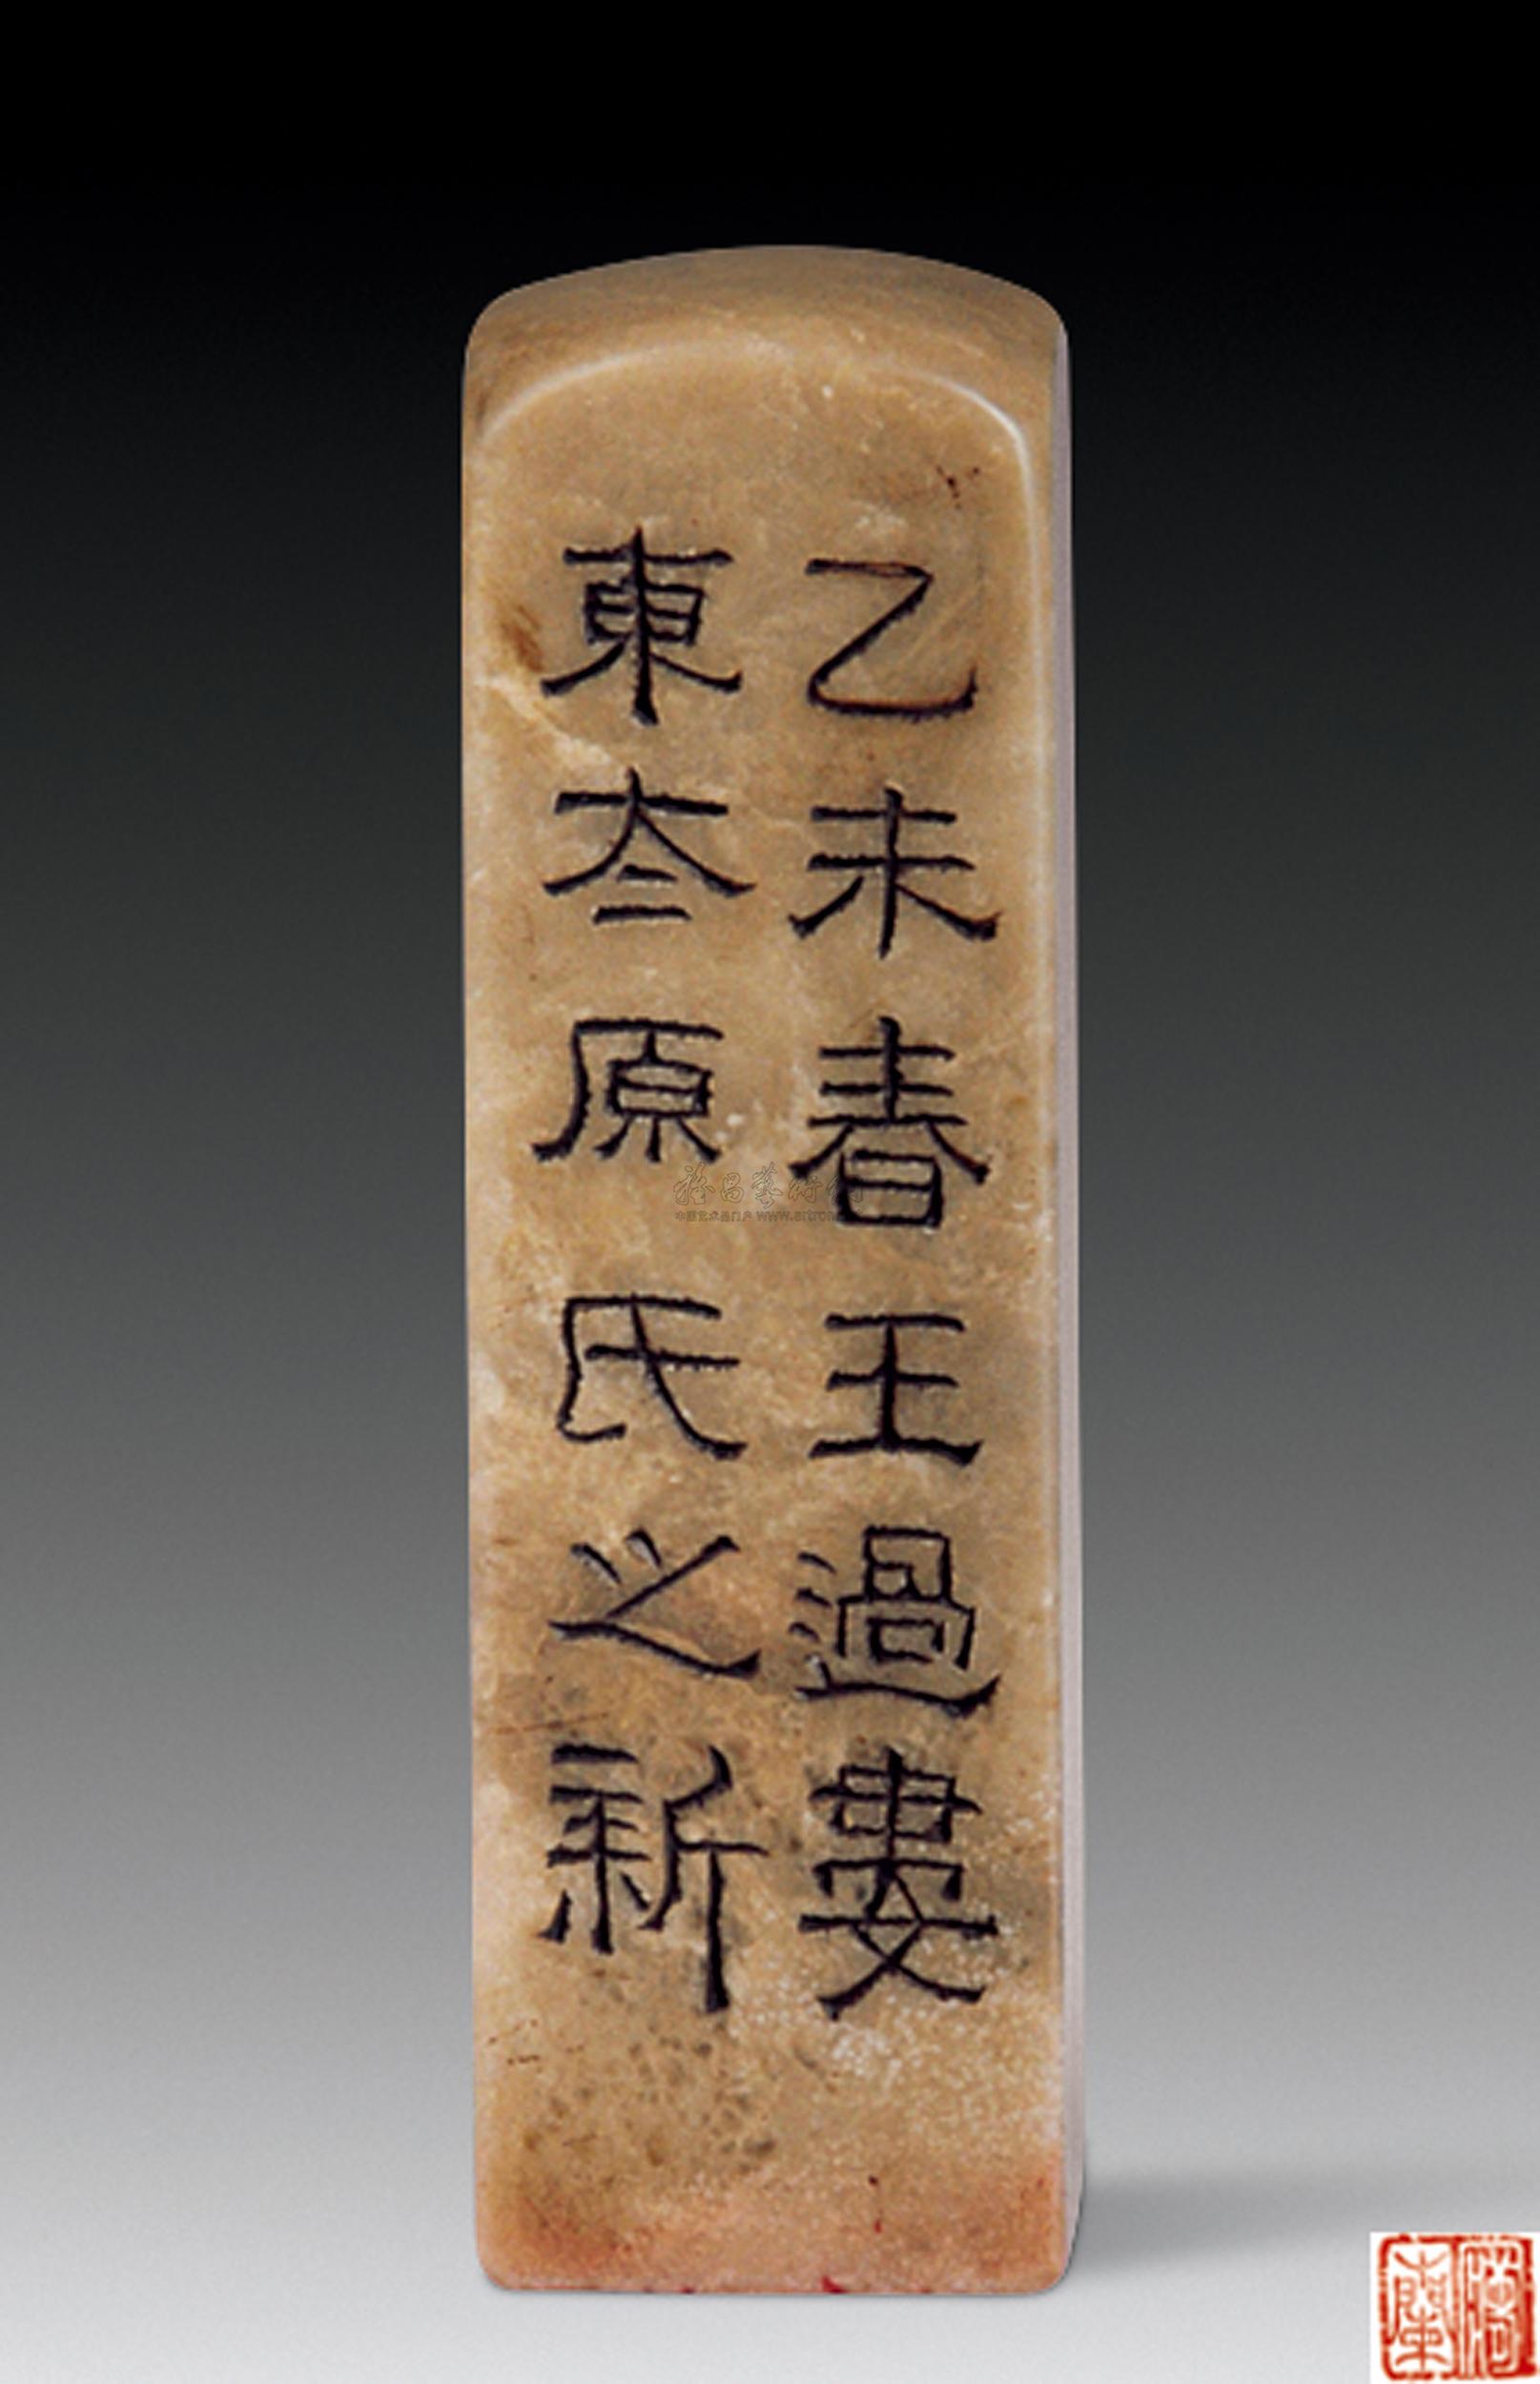 乙未春王過婁
東太原氏之新
雅昌藝術網
中国艺术品门户 www.artron.net